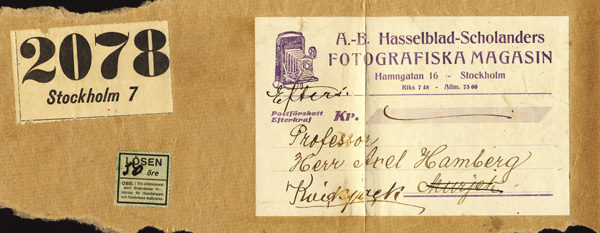 2078
Stockholm 7
LÖSEN
50 öre
A.-B. Hasselblad-Scholanders
FOTOGRAFISKA MAGASIN
Hamngatan 16 - Stockholm
Riks 7 48 - Allm. 75 00
Efters.
Postförskott
Efterkraf
Kr.
Professor
Herr Axel Hamberg
Kvickjock